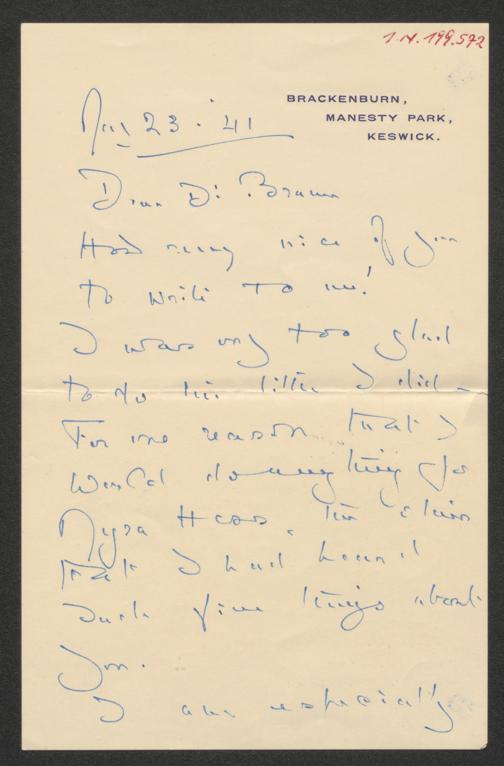 I.N. 199.592
BRACKENBURN,
MANESTY PARK,
KESWICK.
23 · '41
Dear Dr Braun
How very nice of you
to write to me!
I was only too glad
to do the little I did –
For one reason that I
would do anything for
Myra Hess, the other
that I had heard
such fine things about
you.
I am especially